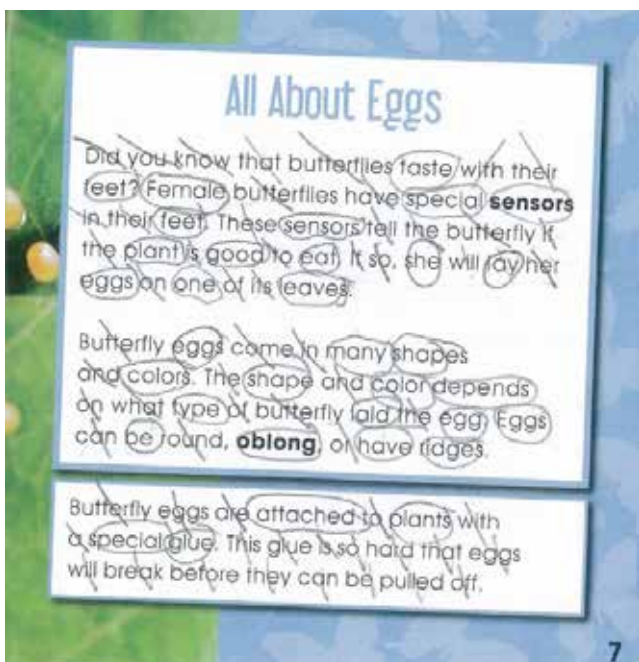 All About Eggs
Did you know that butterflies taste with their
feet? Female butterflies have special sensors
in their feet. These sensors tell the butterfly if
the plant is good to eat. If so, she will lay her
eggs on one of its leaves.
Butterfly eggs come in many shapes
and colors. The shape and color depends
on what type of butterfly laid the egg. Eggs
can be round, oblong, or have ridges.
Butterfly eggs are attached to plants with
a special glue. This glue is so hard that eggs
will break before they can be pulled off.
7